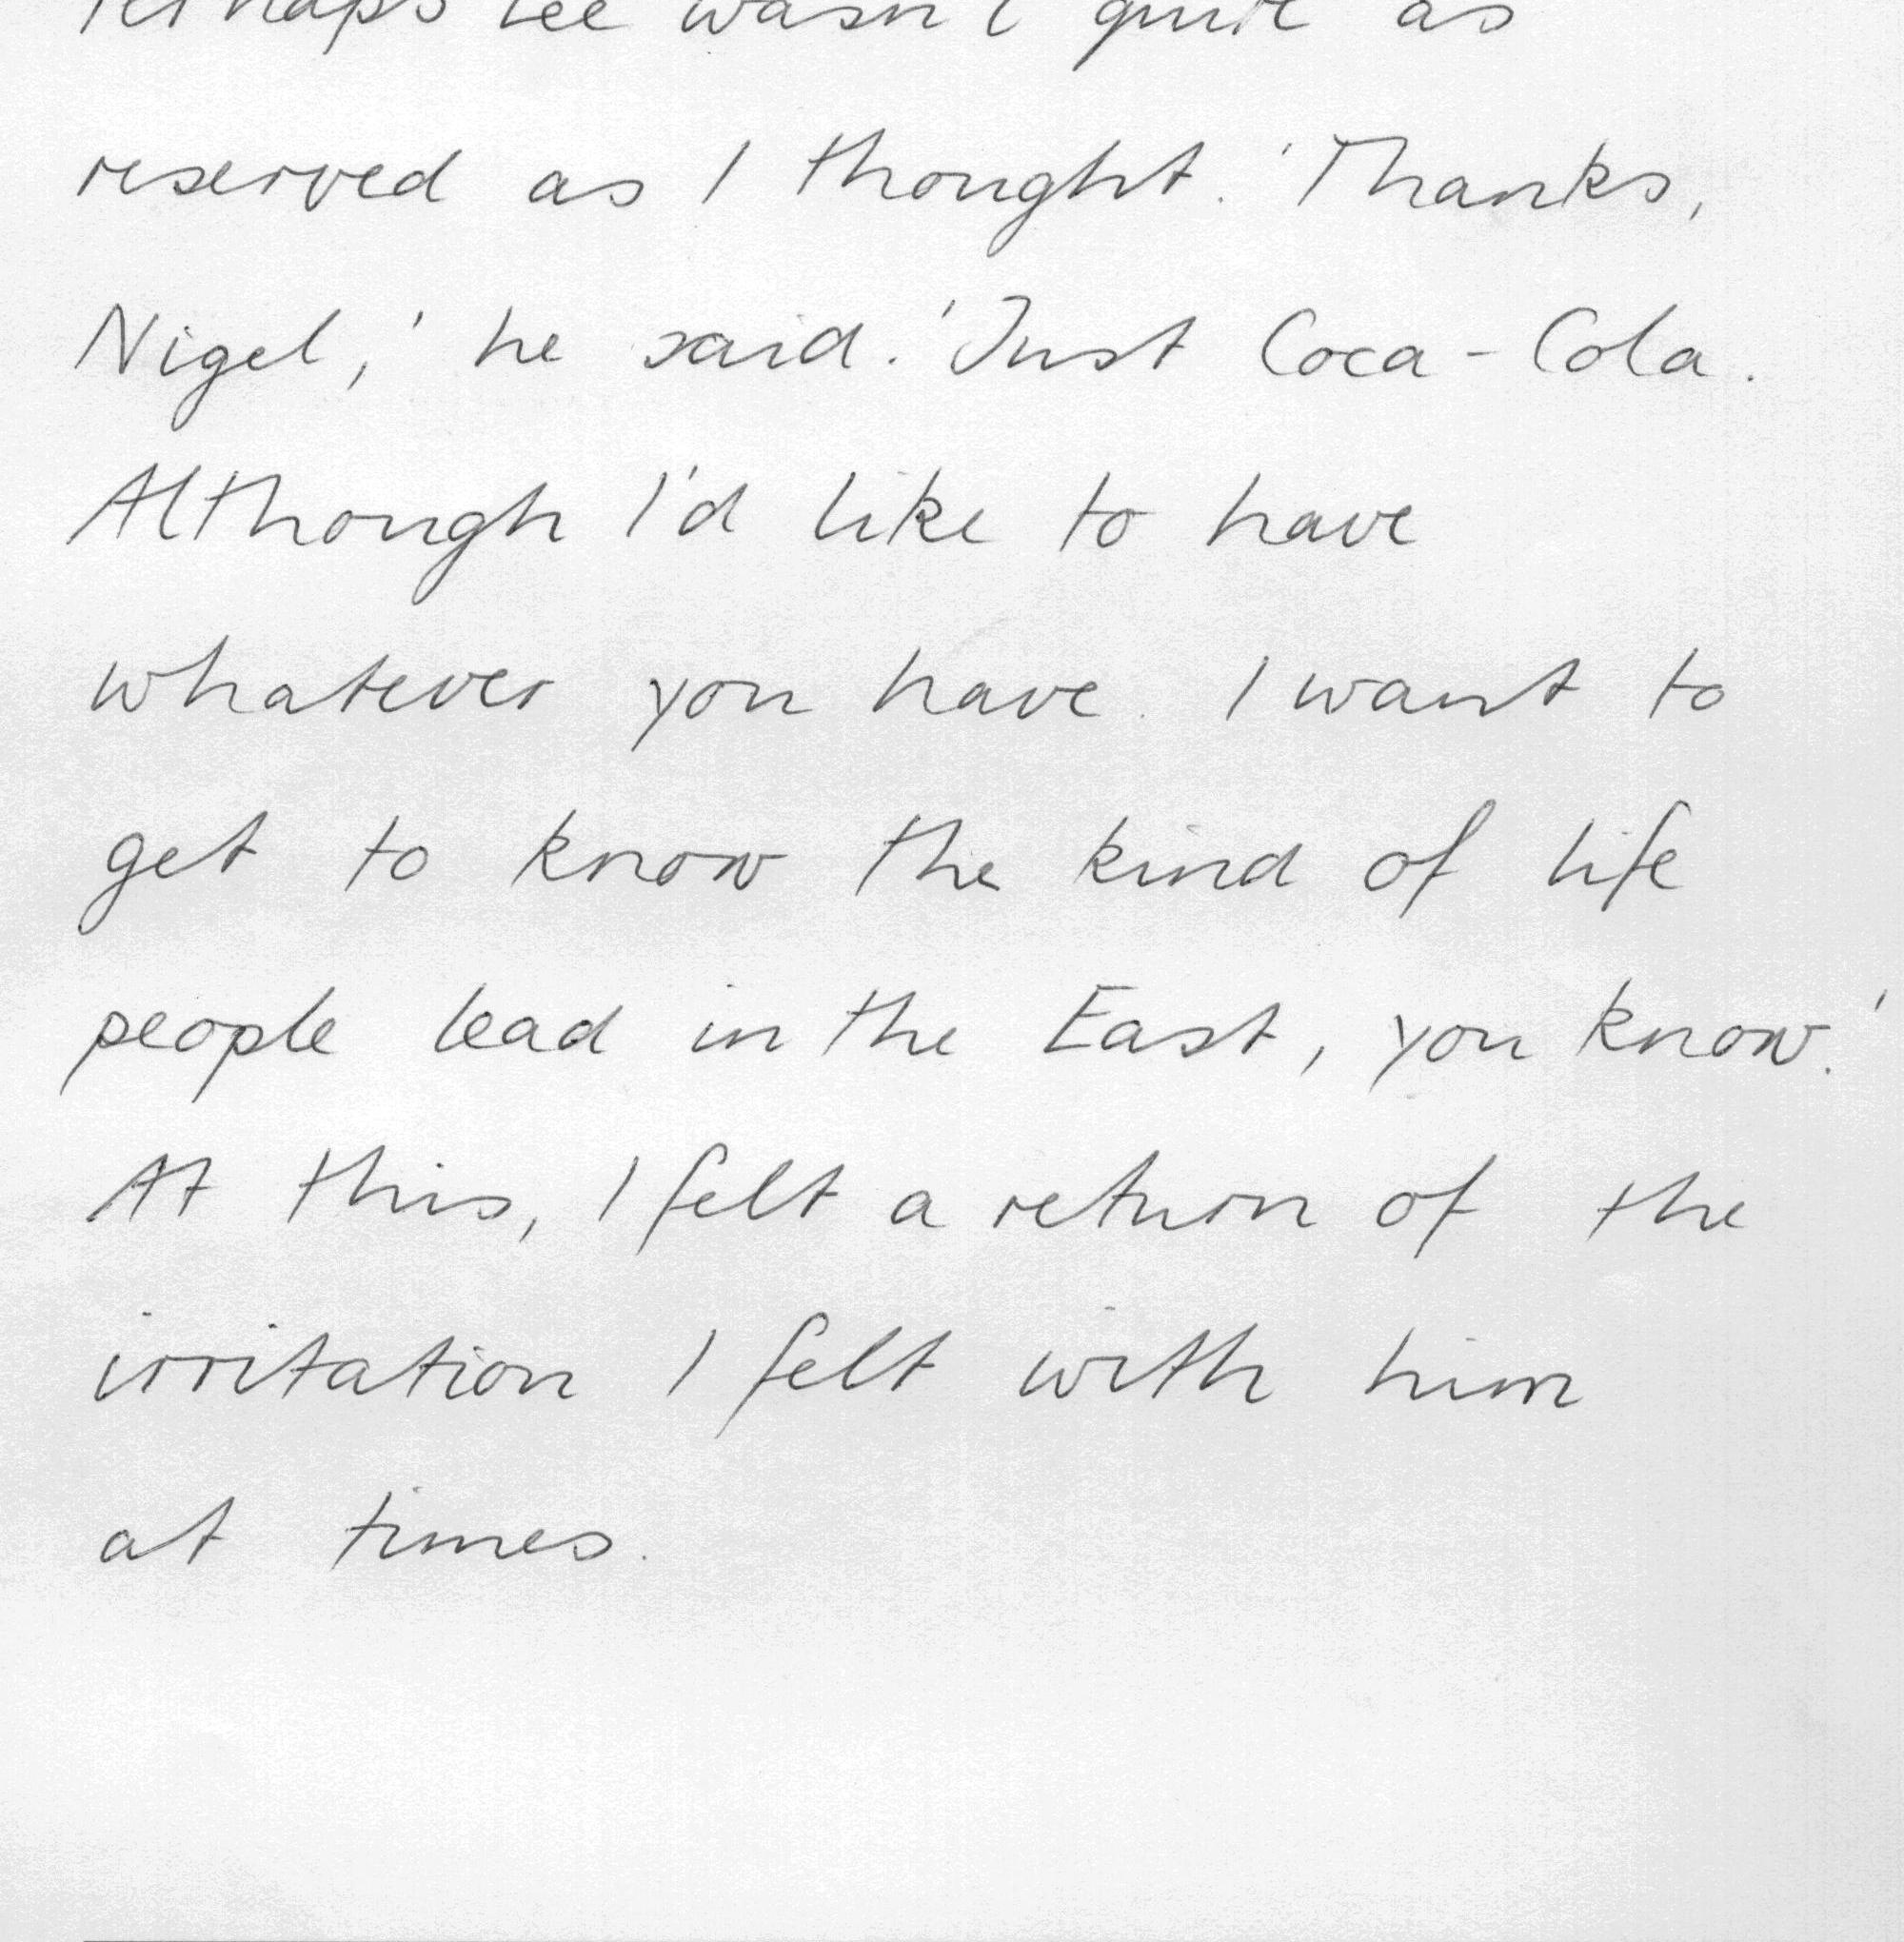 Perhaps Lee wasn't quite as
reserved as I thought. 'Thanks,
Nigel,' he said. 'Just Coca-Cola.
Although I'd like to have
whatever you have. I want to
get to know the kind of life
people lead in the East, you know.'
At this, I felt a return of the
irritation I felt with him
at times.